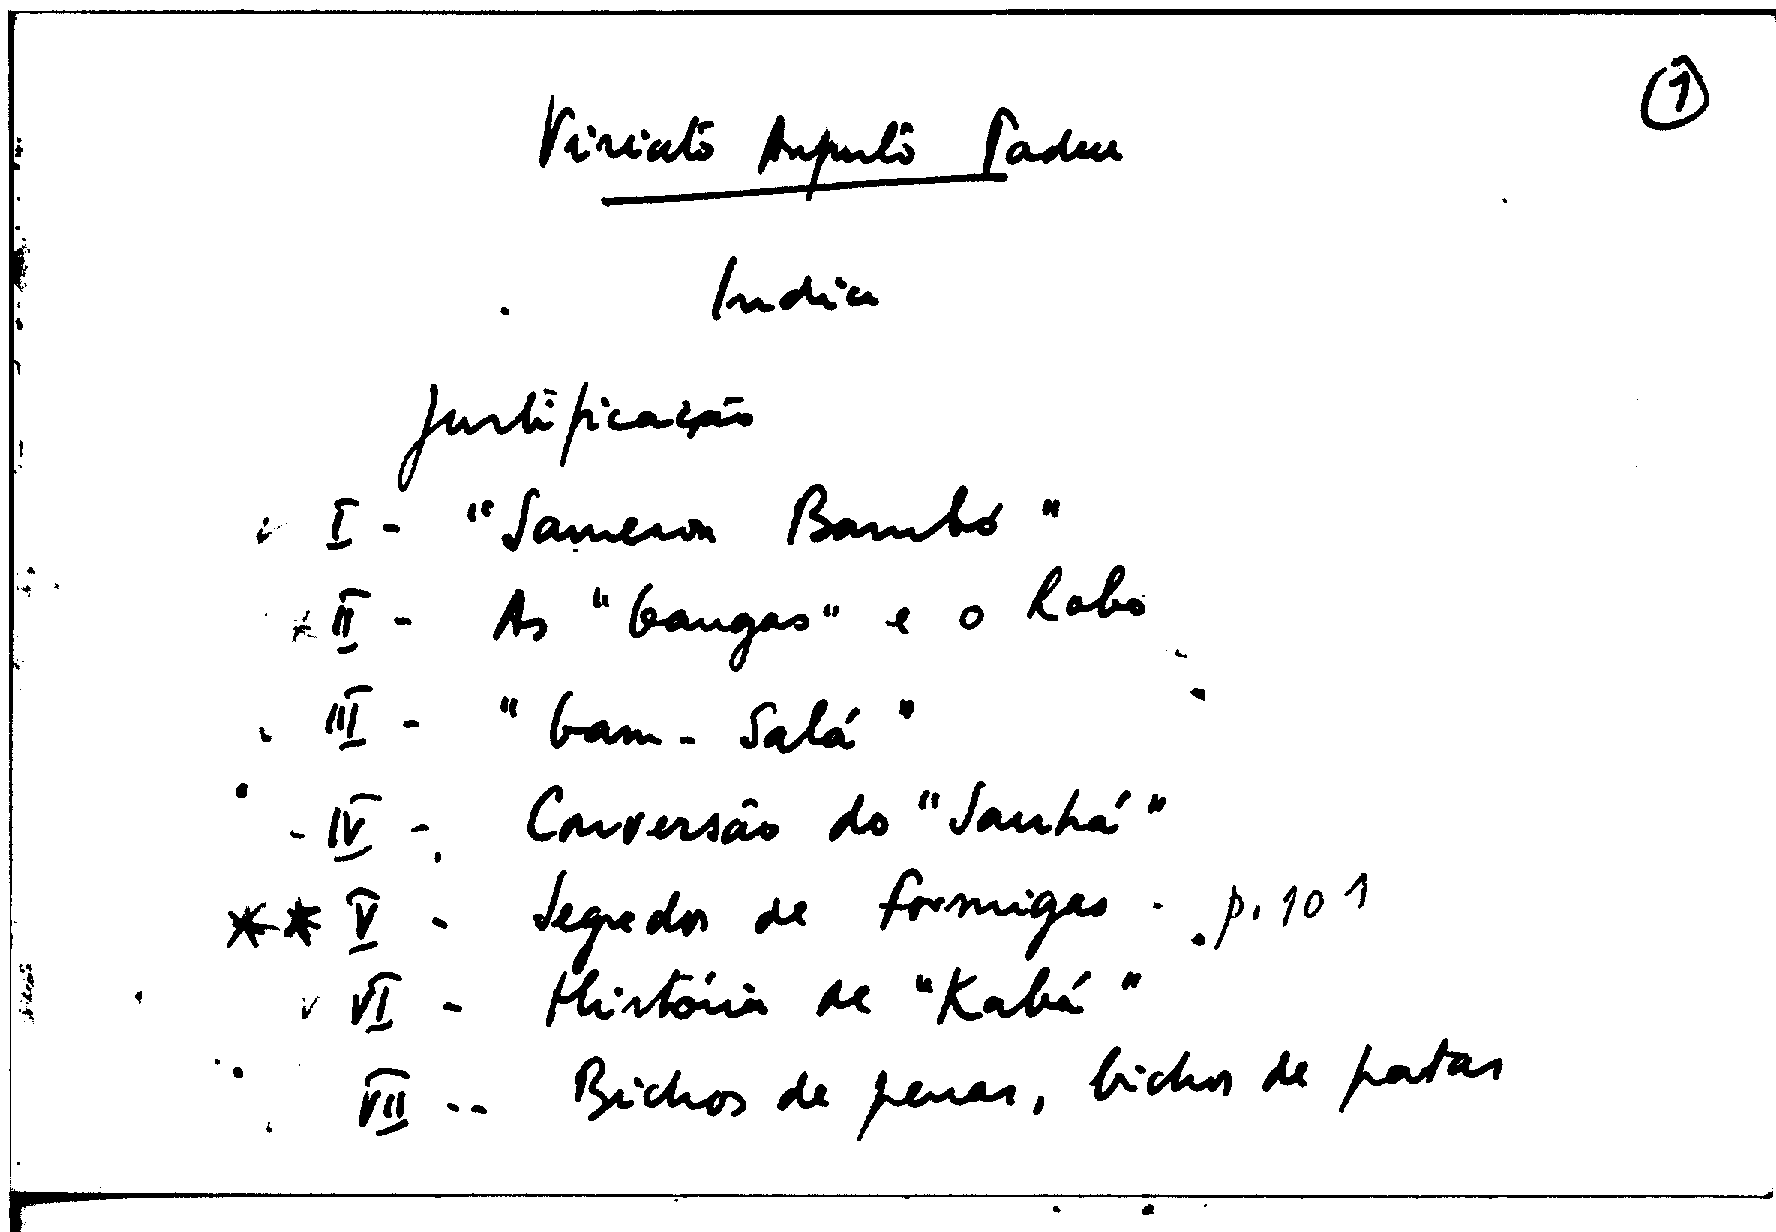 ①
Viriato Augusto Tadeu
Indice
Justificação
I - "Sameron Bambó"
II - As "Gangas" e o Lobo
III - "Gam-Salá"
IV - Conversão do "Sanhá"
** V - Segredos de formigas - p. 101
VI - História de "Kabá"
VII -- Bichos de penas, bichos de patas